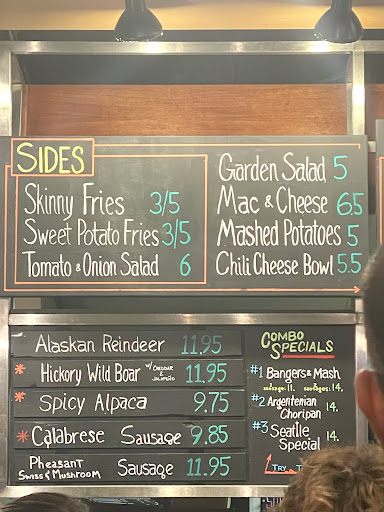 SIDES
Skinny Fries 3/5
Sweet Potato Fries 3/5
Tomato & Onion Salad 6
Garden Salad 5
Mac & Cheese 6.5
Mashed Potatoes 5
Chili Cheese Bowl 5.5
Alaskan Reindeer 11.95
* Hickory Wild Boar w/ CHEDDAR & JALAPEÑO 11.95
* Spicy Alpaca 9.75
* Calabrese Sausage 9.85
Pheasant Swiss & Mushroom Sausage 11.95
COMBO
SPECIALS
#1 Bangers & Mash
sausage: 11. sausages: 14.
#2 Argentenian
Choripan 14.
#3 Seattle
Special 14.
TRY